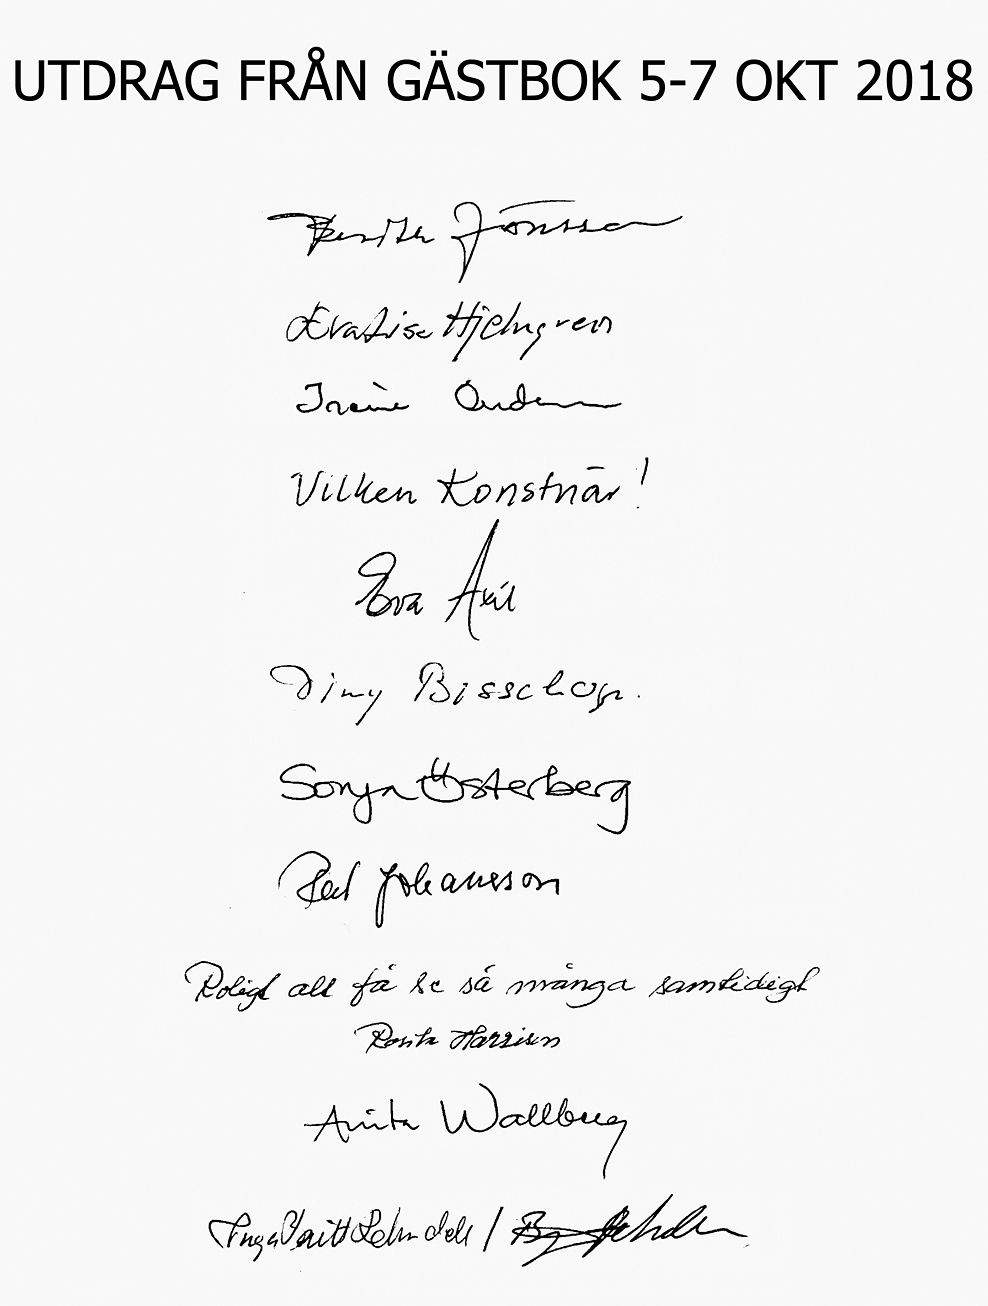 UTDRAG FRÅN GÄSTBOK 5-7 OKT 2018
Jönsson
EvaLise Hjelmgren
Irené
Vilken Konstnär!
Eva Axil
Diny Bisschop.
Sonja Österberg
Johansson
Roligt att få se så många samtidigt
Rosita Harrison
Anita Wallberg
IngaBritt /